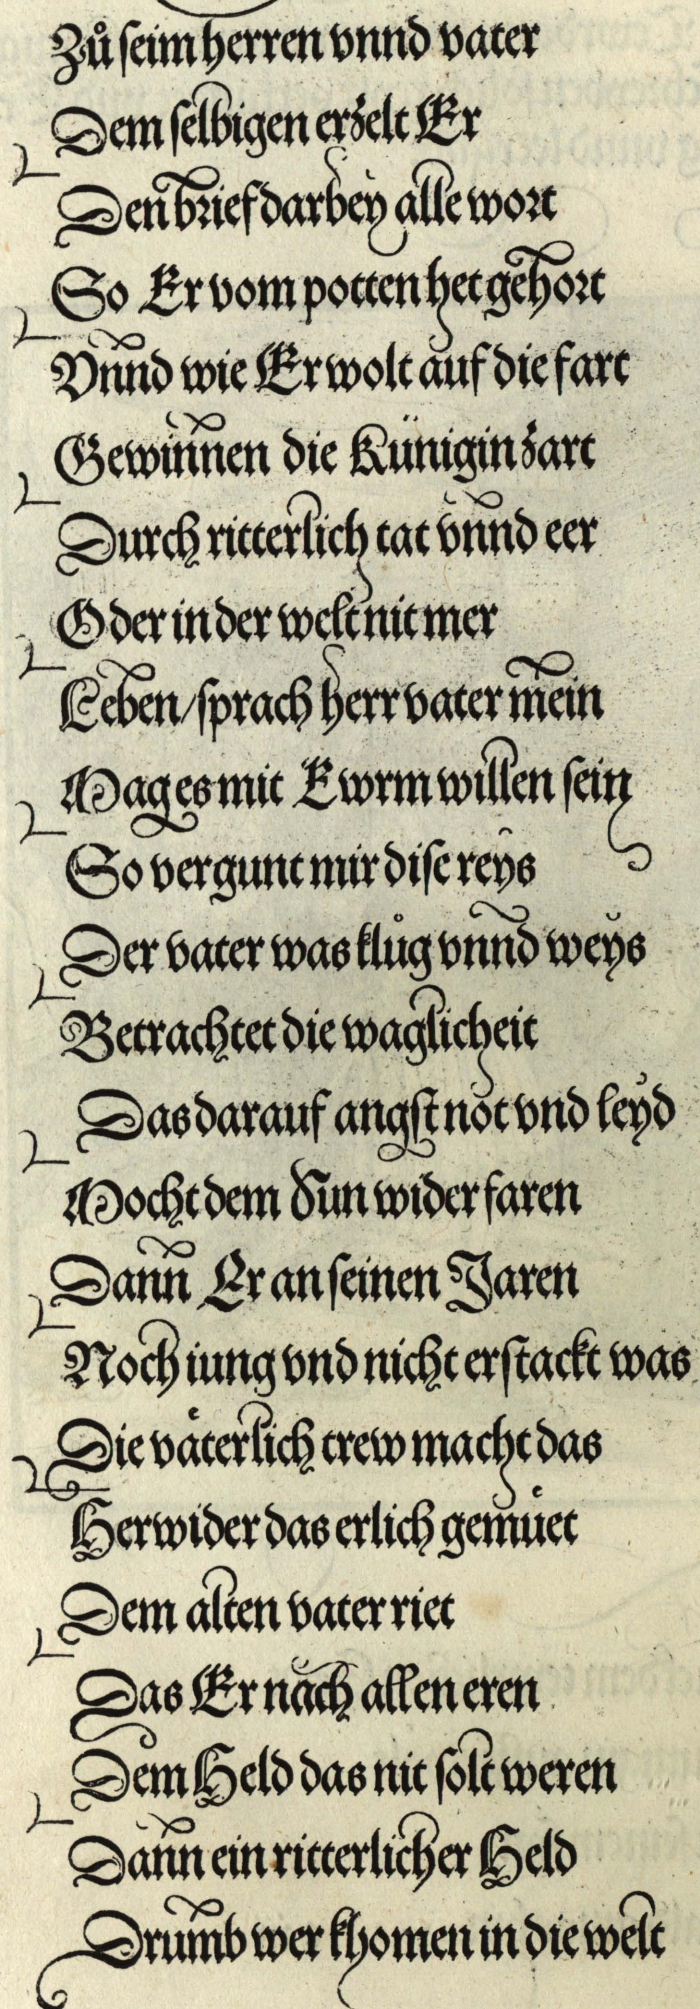 Zů seim herren vnnd vater
Dem selbigen erzelt Er
Den brief darbey alle wort
So Er vom potten het gehort
Vnnd wie Er wolt auf die fart
Gewinnen die Künigin zart
Durch ritterlich tat vnnd eer
Oder in der welt nit mer
Leben / sprach herr vater mein
Mag es mit Ewrm willen sein
So vergunt mir dise reys
Der vater was klůg vnnd weys
Betrachtet die waglicheit
Das darauf angst not vnd leyd
Mocht dem Sun widerfaren
Dann Er an seinen Jaren
Noch iung vnd nicht erstackt was
Die väterlich trew macht das
Herwider das erlich gemüet
Dem alten vater riet
Das Er nach allen eren
Dem Held das nit solt weren
Dann ein ritterlicher Held
Drumb wer khomen in die welt